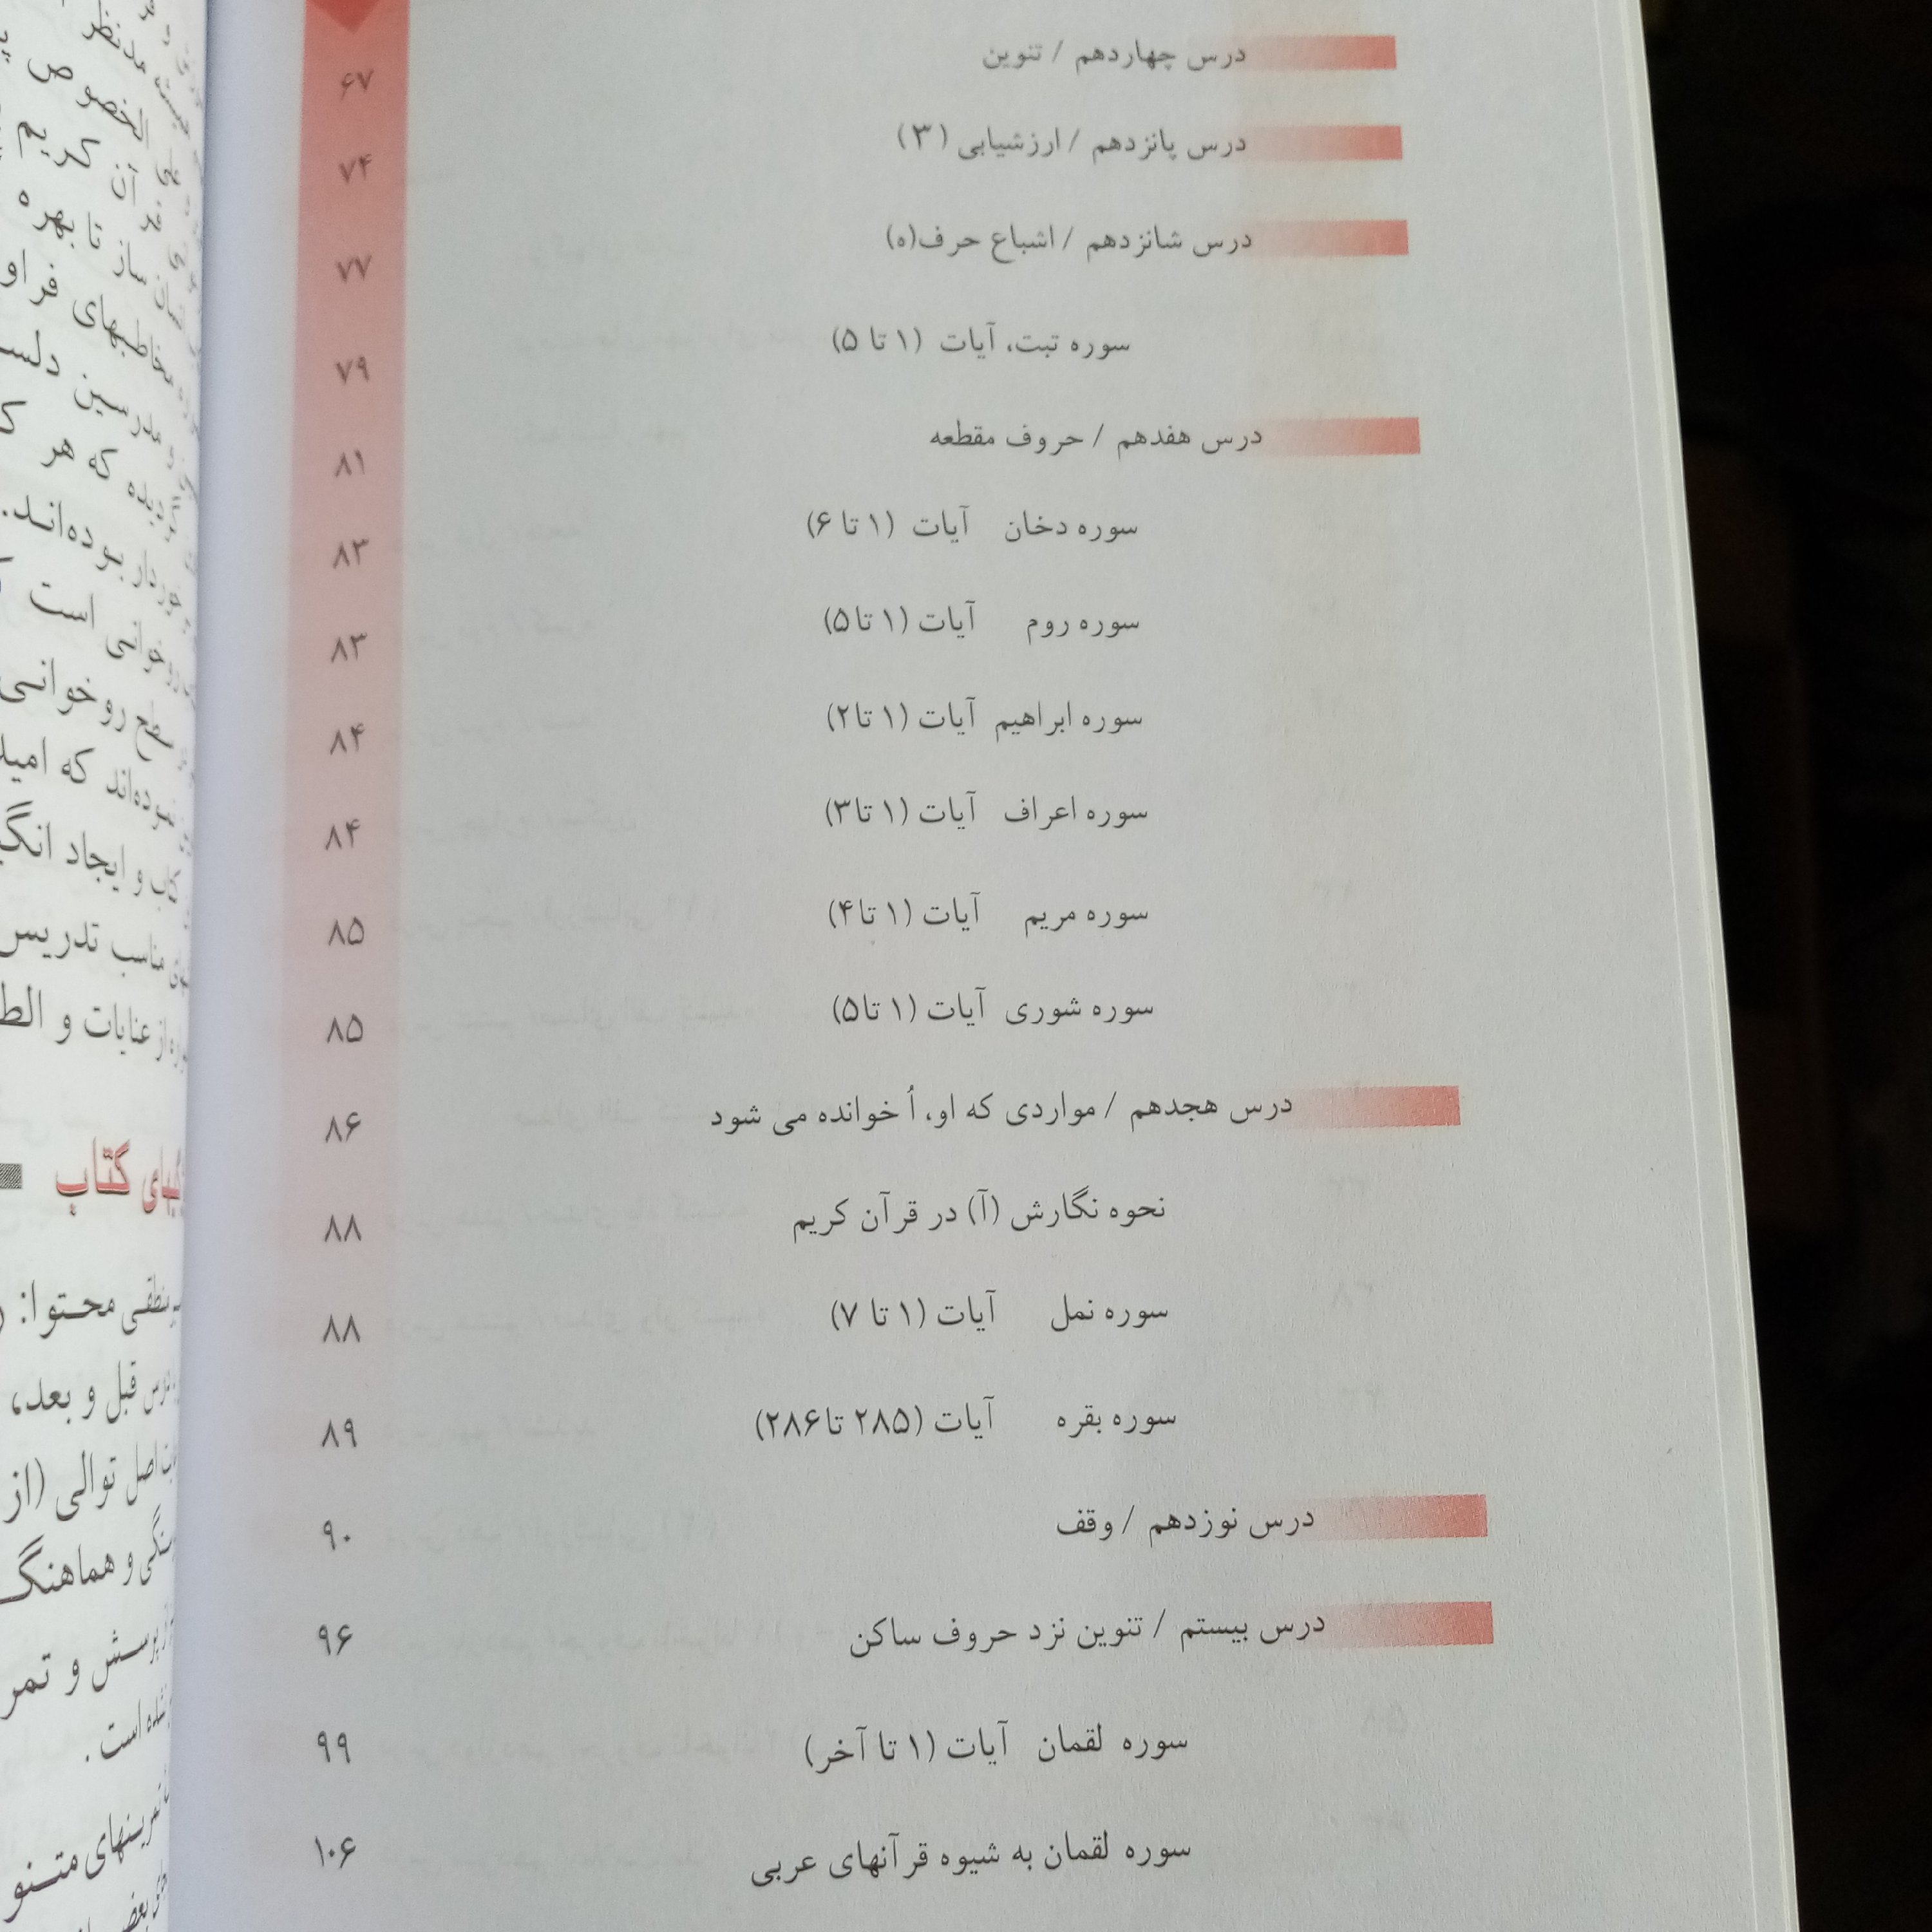 درس چهاردهم / تنوین ۶۷
درس پانزدهم / ارزشیابی (۳) ۷۴
درس شانزدهم / اشباع حرف(ه) ۷۷
سوره تبت، آیات (۱ تا ۵) ۷۹
درس هفدهم / حروف مقطعه ۸۱
سوره دخان آیات (۱ تا ۶) ۸۳
سوره روم آیات (۱ تا ۵) ۸۳
سوره ابراهیم آیات (۱ تا ۲) ۸۴
سوره اعراف آیات (۱ تا ۳) ۸۴
سوره مریم آیات (۱ تا ۴) ۸۵
سوره شوری آیات (۱ تا ۵) ۸۵
درس هجدهم / مواردی که او، اُ خوانده می شود ۸۶
نحوه نگارش (آ) در قرآن کریم ۸۸
سوره نمل آیات (۱ تا ۷) ۸۸
سوره بقره آیات (۲۸۵ تا ۲۸۶) ۸۹
درس نوزدهم / وقف ۹۰
درس بیستم / تنوین نزد حروف ساکن ۹۶
سوره لقمان آیات (۱ تا آخر) ۹۹
سوره لقمان به شیوه قرآنهای عربی ۱۰۶
کریم
ساز تا بهره
که هر
بوده‌اند.
است
روخوانی
که امید
و ایجاد
مناسب تدریس
از عنایات و
کتاب
محتوا:
درس قبل و بعد،
اصل توالی (از
و هماهنگ
و
شده است.